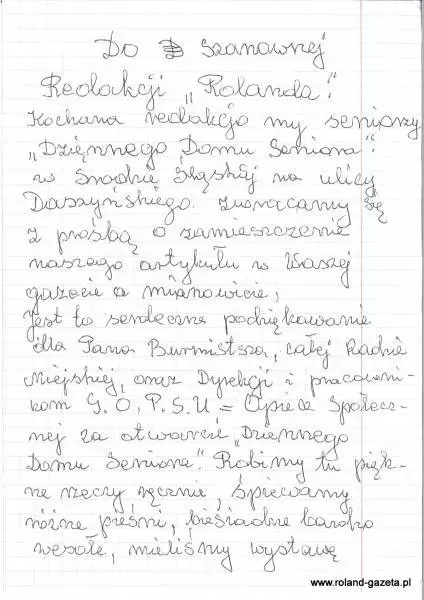 Do Szanownej
Redakcji „Rolanda".
Kochana redakcjo my seniorzy
„Dziennego Domu Seniora".
w Środzie Śląskiej na ulicy
Daszyńskiego. Zwracamy się
z prośbą o zamieszczenie
naszego artykułu w Waszej
gazecie a mianowicie,
Jest to serdeczne podziękowanie
dla Pana Burmistrza, całej Radzie
Miejskiej, oraz Dyrekcji i pracowni-
kom G.O.P.S.U = Opiece Społecz-
nej za otwarcie „Dziennego
Domu Seniora". Robimy tu pięk-
ne rzeczy ręcznie, śpiewamy
różne pieśni, biesiadne bardzo
wesołe, mieliśmy wystawę
www.roland-gazeta.pl